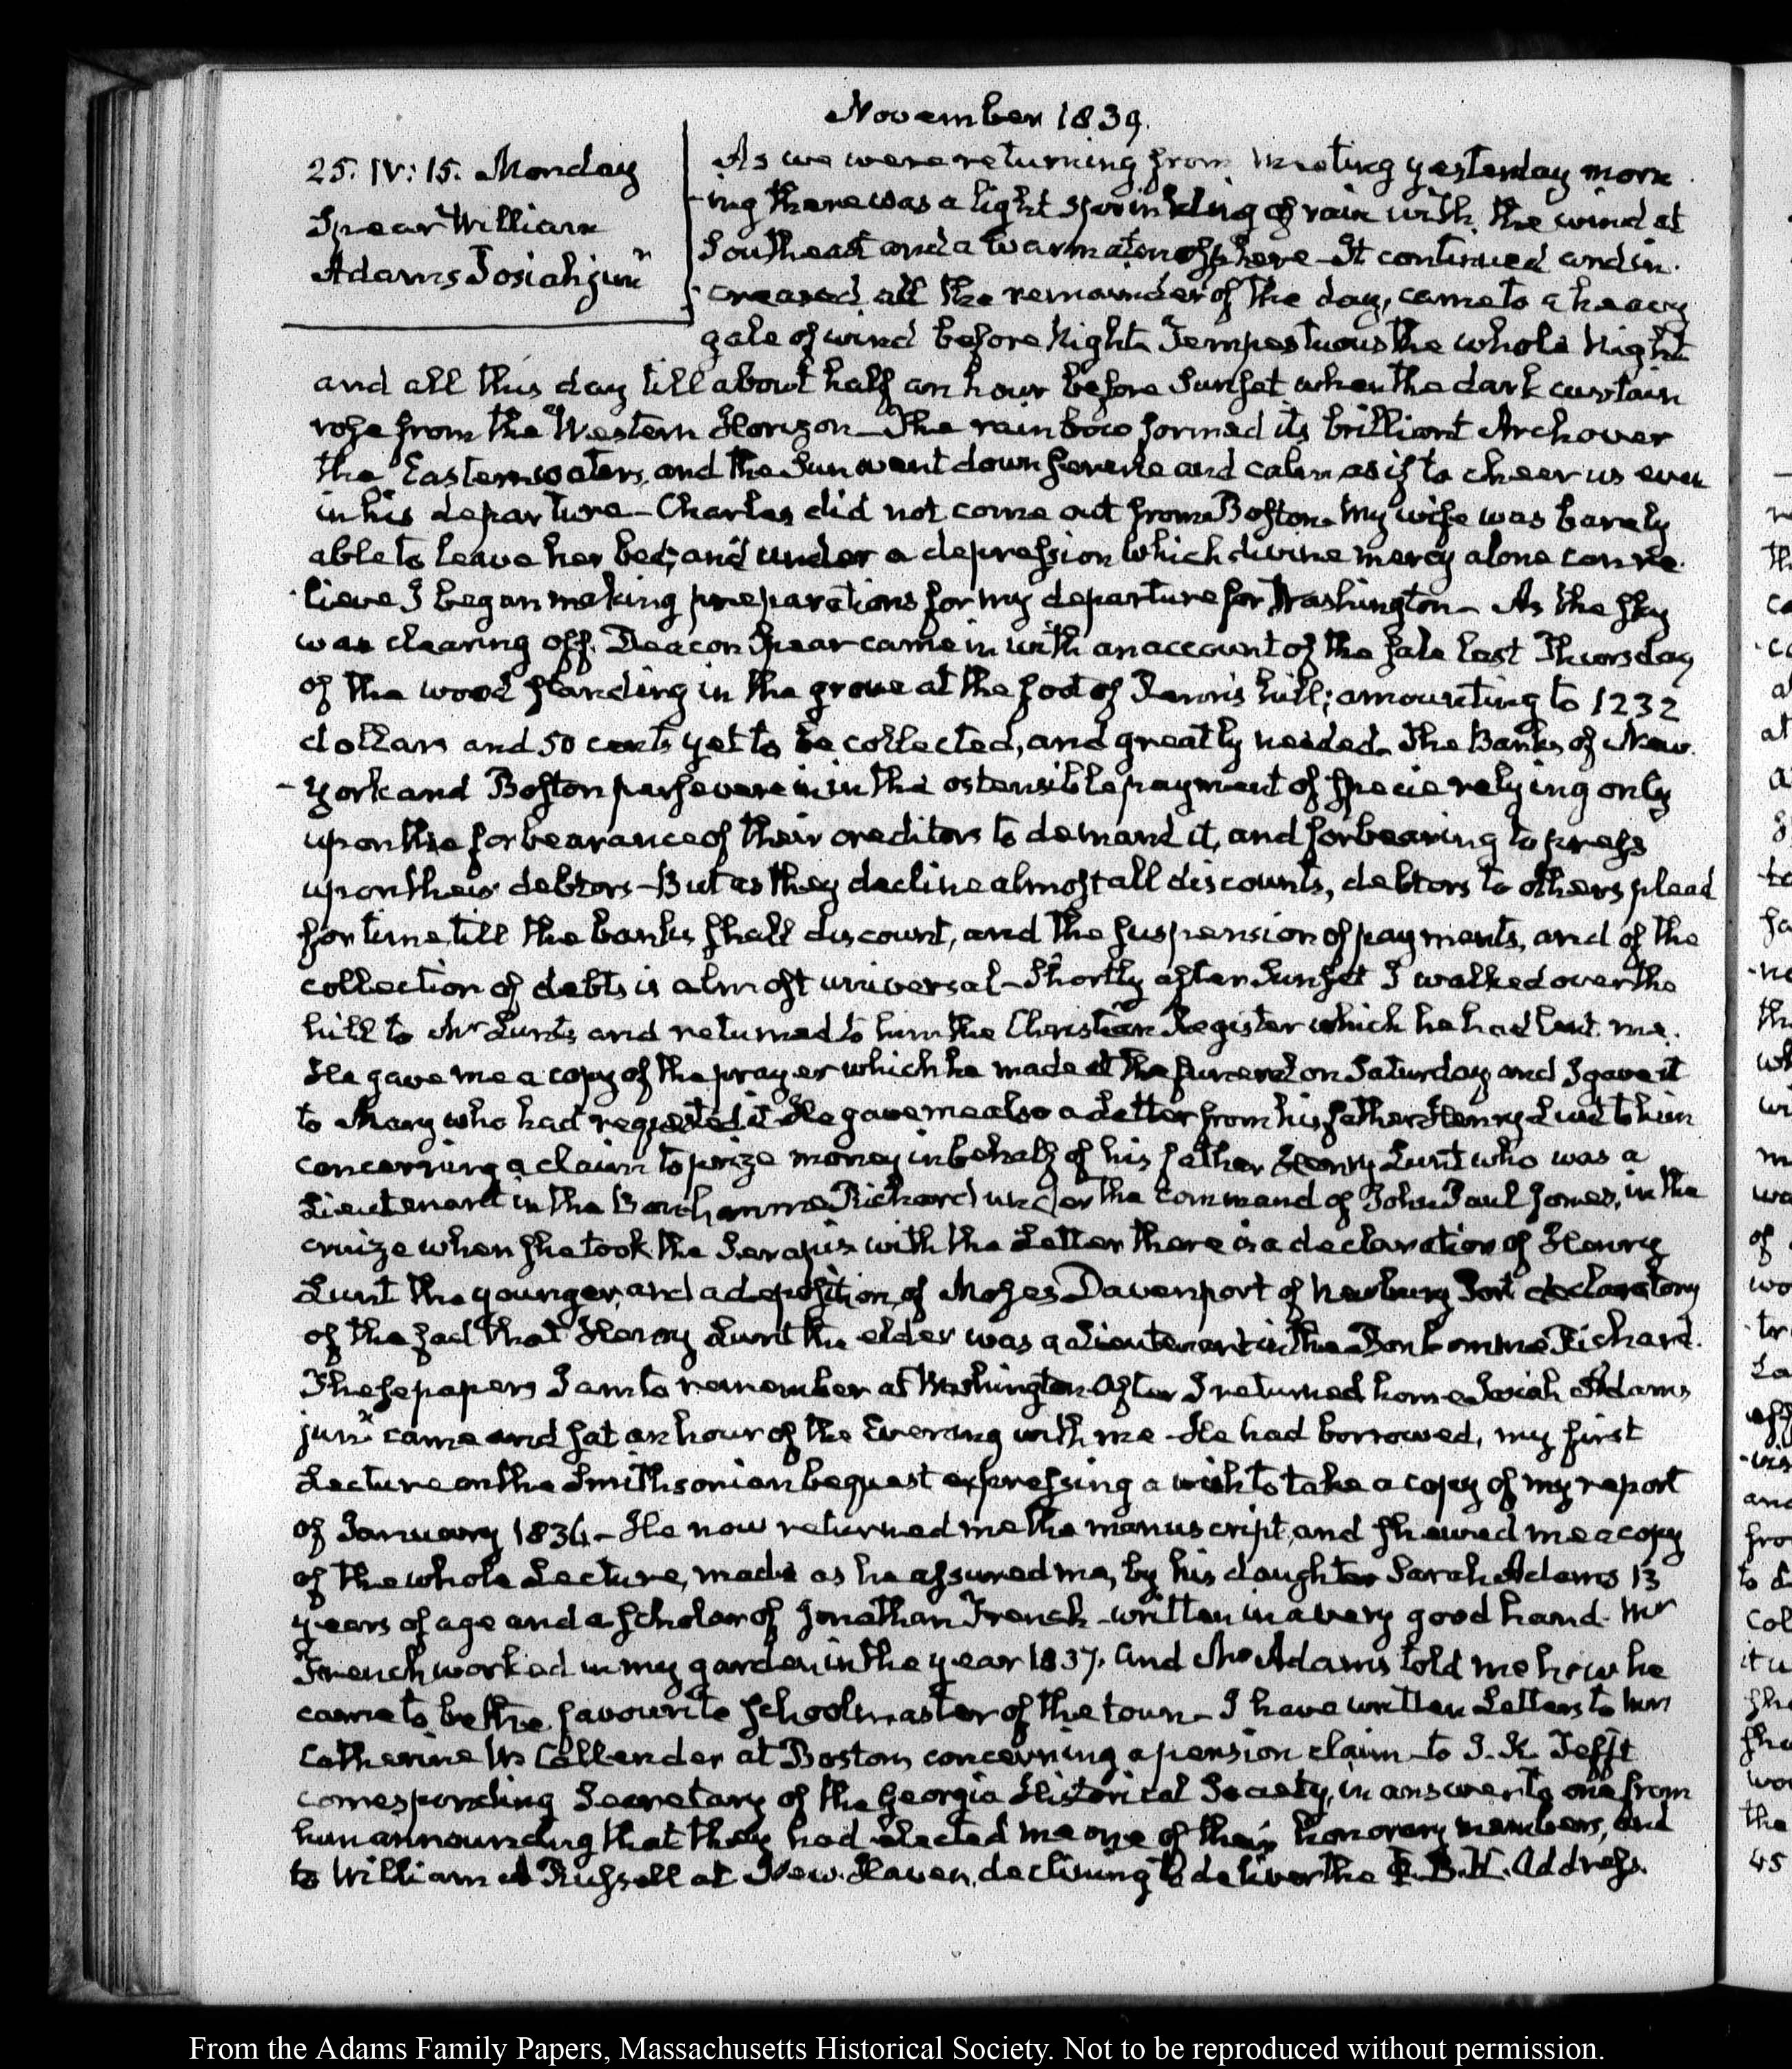 November 1839.
25. IV: 15. Monday
Spear William
Adams Josiah junr
As we were returning from Meeting yesterday morn
-ing there was a light sprinkling of rain with the wind at
Southeast and a warm atmosphere— It continued and in-
-creased all the remainder of the day, came to a heavy
gale of wind before Night. Tempestuous the whole Night
and all this day till about half an hour before Sunset when the dark curtain
rose from the Western Horizon— The rainbow formed its brilliant Arch over
the Eastern waters, and the Sun went down serene and calm as if to cheer us even
in his departure— Charles did not come out from Boston. My wife was barely
able to leave her bed; and under a depression which divine mercy alone can re-
-lieve I began making preparations for my departure for Washington— As the sky
was clearing off. Deacon Spear came in with an account of the sale last Thursday
of the wood standing in the grove at the foot of Penn's hill; amounting to 1232
dollars and 50 cents yet to be collected, and greatly needed. The Banks of New-
-York and Boston persevere in in the ostensible payment of specie relying only
upon the forbearance of their creditors to demand it, and forbearing to press
upon their debtors— But as they decline almost all discounts, debtors to others plead
for time, till the banks shall discount, and the suspension of payments, and of the
collection of debts is almost universal— Shortly after Sunset I walked over the
hill to Mr Lunt's and returned to him the Christian Register which he had lent me.
He gave me a copy of the prayer which he made at the funeral on Saturday and I gave it
to Mary who had requested it. He gave me also a Letter from his father Henry Lunt to him
concerning a claim to prize money in behalf of his father Henry Lunt who was a
Lieutenant in the Bonhomme Richard under the command of John Paul Jones, in the
cruize when she took the Serapis with the Letter there is a declaration of Henry
Lunt the younger, and a deposition of Moses Davenport of Newbury Port declaratory
of the fact that Henry Lunt the elder was a Lieutenant in the Bonhomme Richard.
These papers I am to remember at Washington. After I returned home Josiah Adams
junr came and sat an hour of the Evening with me— He had borrowed, my first
Lecture on the Smithsonian bequest expressing a wish to take a copy of my report
of January 1836— He now returned me the manuscript, and shewed me a copy
of the whole Lecture, made as he assured me, by his daughter Sarah Adams 13
years of age and a scholar of Jonathan French— written in a very good hand. Mr
French worked in my garden in the year 1837. and Mr Adams told me how he
came to be the favourite schoolmaster of the town— I have written Letters to Mrs
Catherine W Callender at Boston, concerning a pension claim— to I. K. Tefft
corresponding Secretary of the Georgia Historical Society, in answer to one from
him announcing that they had elected me one of their honorary members, and
to William A Russell at New-Haven, declining to deliver the Φ. B. K. Address.
From the Adams Family Papers, Massachusetts Historical Society. Not to be reproduced without permission.